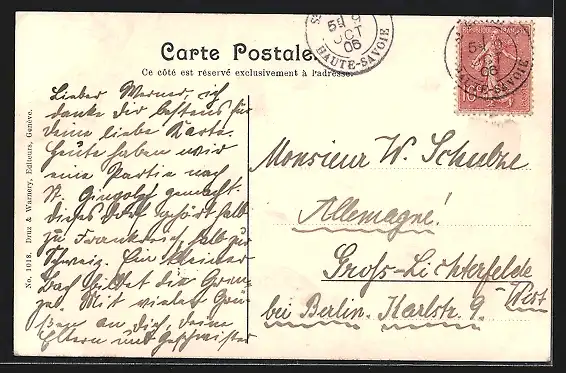 Carte Postale.
Ce côté est réservé exclusivement à l'adresse.
5E 9
OCT
06
HAUTE-SAVOIE
5E 9
06
HAUTE-SAVOIE
10
No. 1018. Druz & Warnery, Editeurs, Genève.
Lieber Werner, ich
danke dir bestens für
deine liebe Karte.
Heute haben wir
eine Partie nach
St. Gingolph gemacht.
dieses Dorf gehört halb
zu Frankreich, halb zur
Schweiz. Ein kleiner
Bach bildet die Gren-
ze. Mit vielen Grü-
ßen an dich, deine
Eltern und Geschwister
Monsieur W. Schulze
Allemagne!
Gross-Lichterfelde
West
bei Berlin. Karlstr. 9.